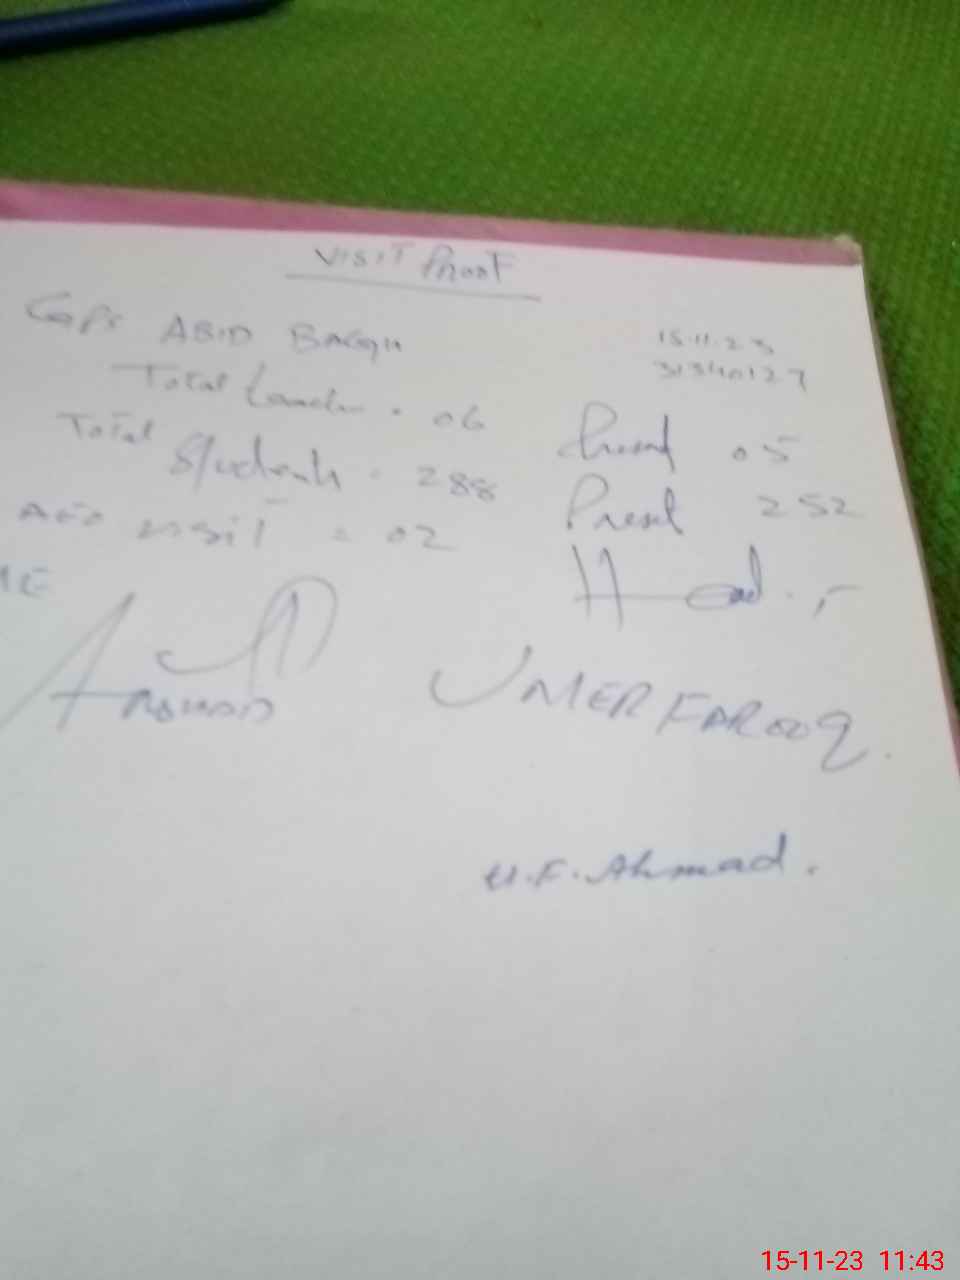 VISIT Proof
GPS ABID BAGH
15.11.23
31340127
Total 06
Present 05
Total Students . 288
Present 252
AEO visit = 02
Head
UMER FAROOQ.
U.F. Ahmad.
15-11-23 11:43